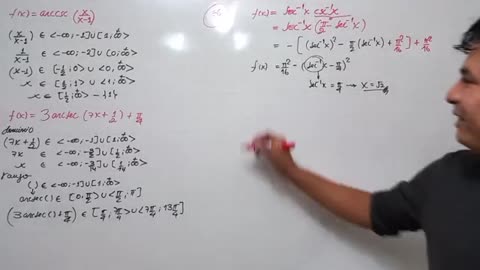 f(x) = arccsc (x/(x-1))
(x/(x-1)) ∈ <-∞; -1] ∪ [1; ∞>
1/(x-1) ∈ <-∞; -2] ∪ [0; ∞>
(x-1) ∈ [-1/2; 0> ∪ <0; ∞>
x ∈ [1/2; 1> ∪ <1; ∞>
x ∈ [1/2; ∞> - {1}
f(x) = 3 arcsec (7x + 1/2) + π/4
dominio
(7x + 1/2) ∈ <-∞; -1] ∪ [1; ∞>
7x ∈ <-∞; -3/2] ∪ [1/2; ∞>
x ∈ <-∞; -3/14] ∪ [1/14; ∞>
rango
( ) ∈ <-∞; -1] ∪ [1; ∞>
arcsec( ) ∈ [0; π/2> ∪ <π/2; π]
(3 arcsec( ) + π/4) ∈ [π/4; 7π/4> ∪ <7π/4; 13π/4]
f(x) = sec⁻¹x csc⁻¹x
= sec⁻¹x (π/2 - sec⁻¹x)
= - [(sec⁻¹x)² - π/2 (sec⁻¹x) + π²/16] + π²/16
f(x) = π²/16 - (sec⁻¹x - π/4)²
sec⁻¹x = π/4 → x = √2